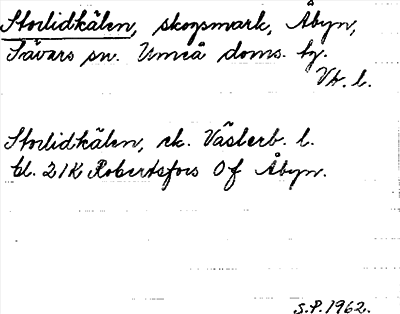 Storlidkälen, skogsmark, Åbyn,
Sävars sn. Umeå doms. hg.
Vb. l.
Storlidkälen, rk. Västerb. l.
bl. 21K Robertsfors 0f Åbyn.
S.P. 1962.